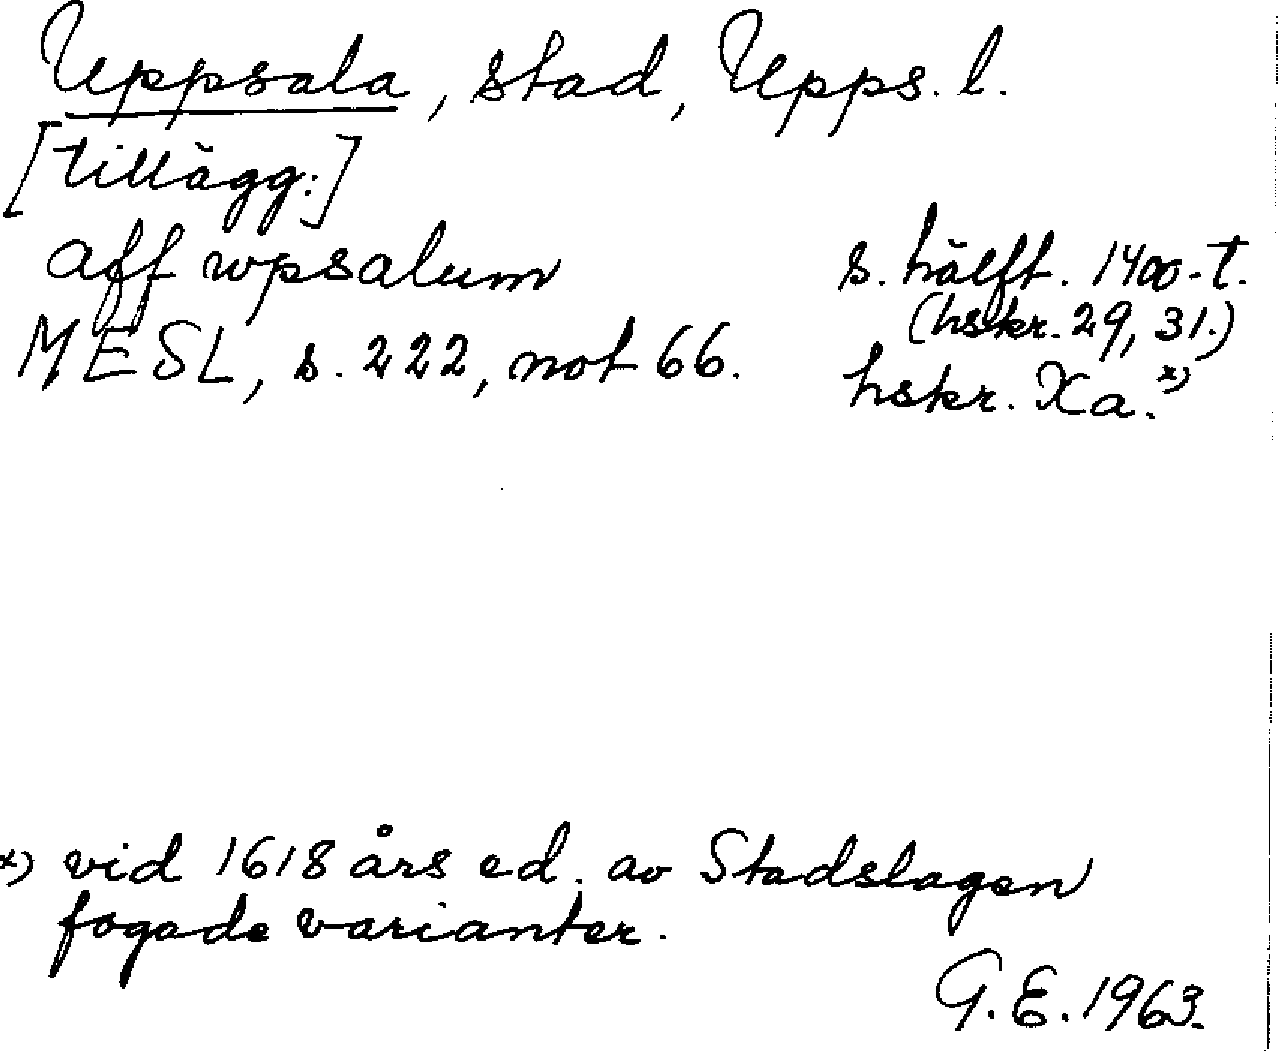 Uppsala, stad, Upps. l.
[tillägg:]
aff wpsalum
s. hälft. 1400-t.
(hskr. 29, 31.)
MESL, s. 222, not 66.
hskr. Xa.x)
x) vid 1618 års ed. av Stadslagen
fogade varianter.
G.E. 1963.